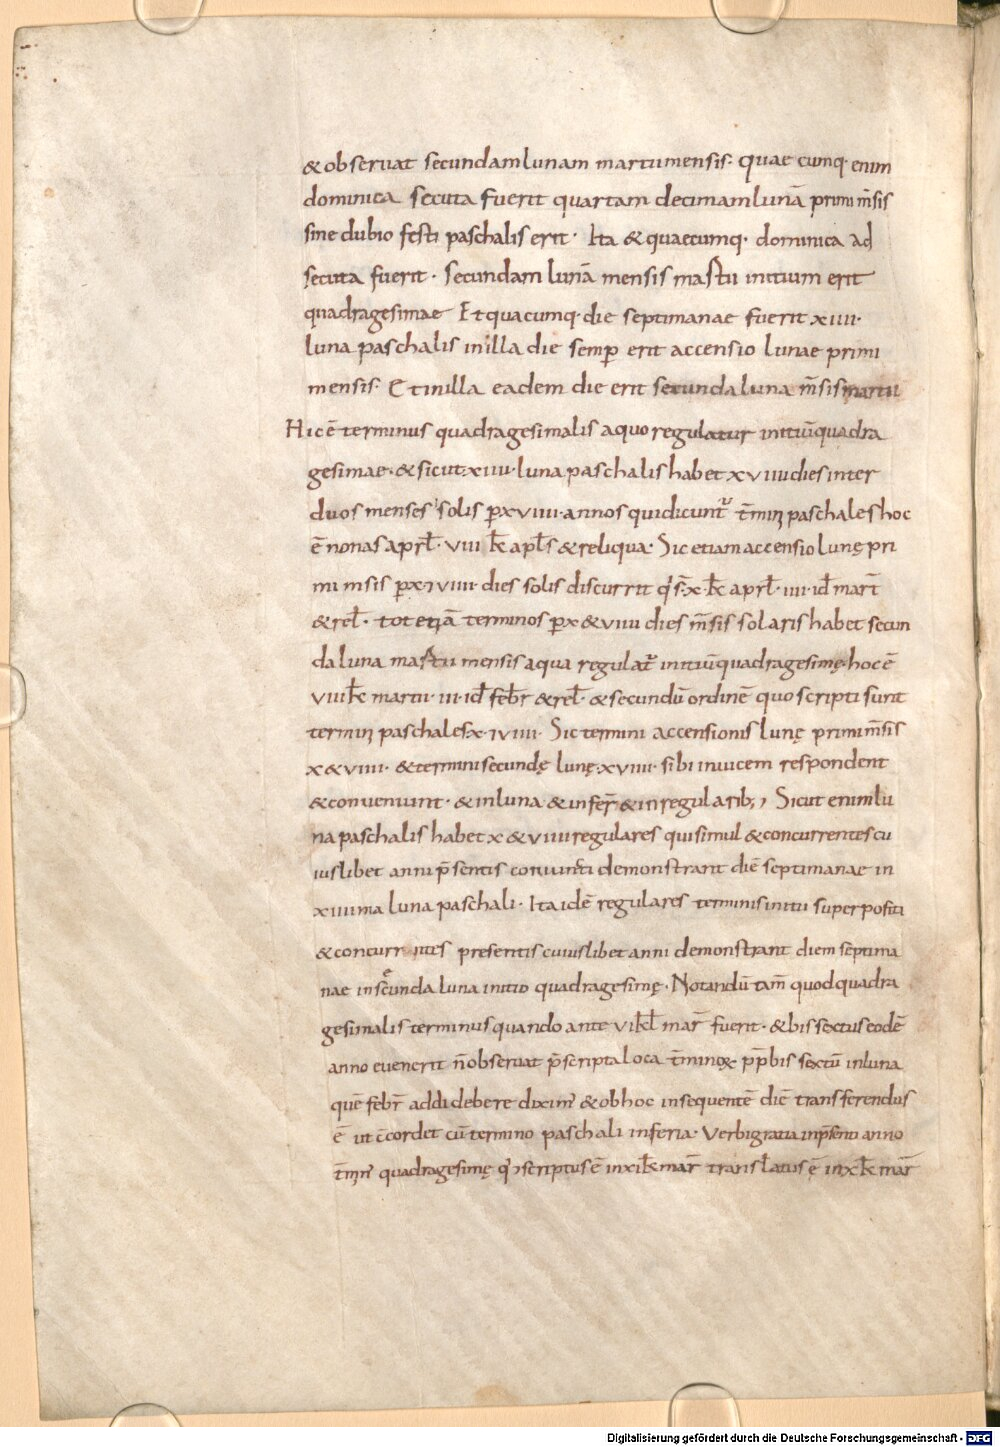 & obseruat secundam lunam martii mensis· quae cumq· enim
dominica secuta fuerit quartam decimam lunā primi m̄sis
sine dubio festi paschalis erit· Ita & quaecumq· dominica ad
secuta fuerit· secundam lunā mensis martii initium erit
quadragesimae Et quacumq· die septimanae fuerit xiiii·
luna paschalis in illa die semp̄ erit accensio lunae primi
mensis· Et in illa eadem die erit secunda luna m̄sis martii
Hic ē terminus quadragesimalis a quo regulatur initiū quadra
gesimae· & sicut xiiii· luna paschalis habet xviiii dies inter
duos menses solis p̄ xviiii· annos qui dicunt᷑ t̄min paschales hoc
ē nonas aprł· viii kł apłs & reliqua· Sic etiam accensio lunę pri
mi m̄sis p̄ xviiii· dies solis discurrit q̇ s̄· x· kł aprł· iiii· id mart̄
& reł· tot etiā terminos p̄ x & viiii dies m̄sis solaris habet secun
da luna martii mensis a qua regulat᷑ initiū quadragesimę· hoc ē
viii kł martii· iii· id feb̄r & reł· & secundū ordinē quo scripti sunt
termini paschales x·viiii· Sic termini accensionis lunę primi m̄sis
x & viiii· & termini secundę lunę· xviiii· sibi inuicem respondent
& conueniunt· & in luna & in fer̄ & in regularib; , Sicut enim lu
na paschalis habet x & viiii regulares qui simul & concurrentes cu
iuslibet anni p̄sentis coniuncti demonstrant diē septimanae in
xiiiima luna paschali· Ita idē regulares terminis initii superpositi
& concurrentes presentis cuiuslibet anni demonstrant diem septima
nae in secunda luna initio quadragesimę· Notandū tam̄ quod quadra
gesimalis terminus quando ante vi kł mar̄ fuerit· & bissextus eodē
anno euenerit n̄ obseruat p̄scripta loca t̄minoꝝ pp̄ bissextū in luna
quē febr̄ addi debere diximꝰ & ob hoc in sequentē diē transferendus
ē ut c̄cordet cū termino paschali in feria· Verbi gratia in p̄senti anno
t̄minꝰ quadragesimę q̇ scriptus ē in xi kł mar̄ translatus ē in x kł mar̄
Digitalisierung gefördert durch die Deutsche Forschungsgemeinschaft - DFG